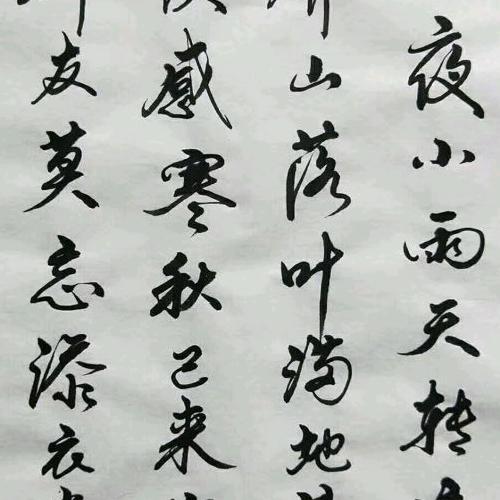 夜小雨天转
山落叶满地
感寒秋已来
友莫忘添衣